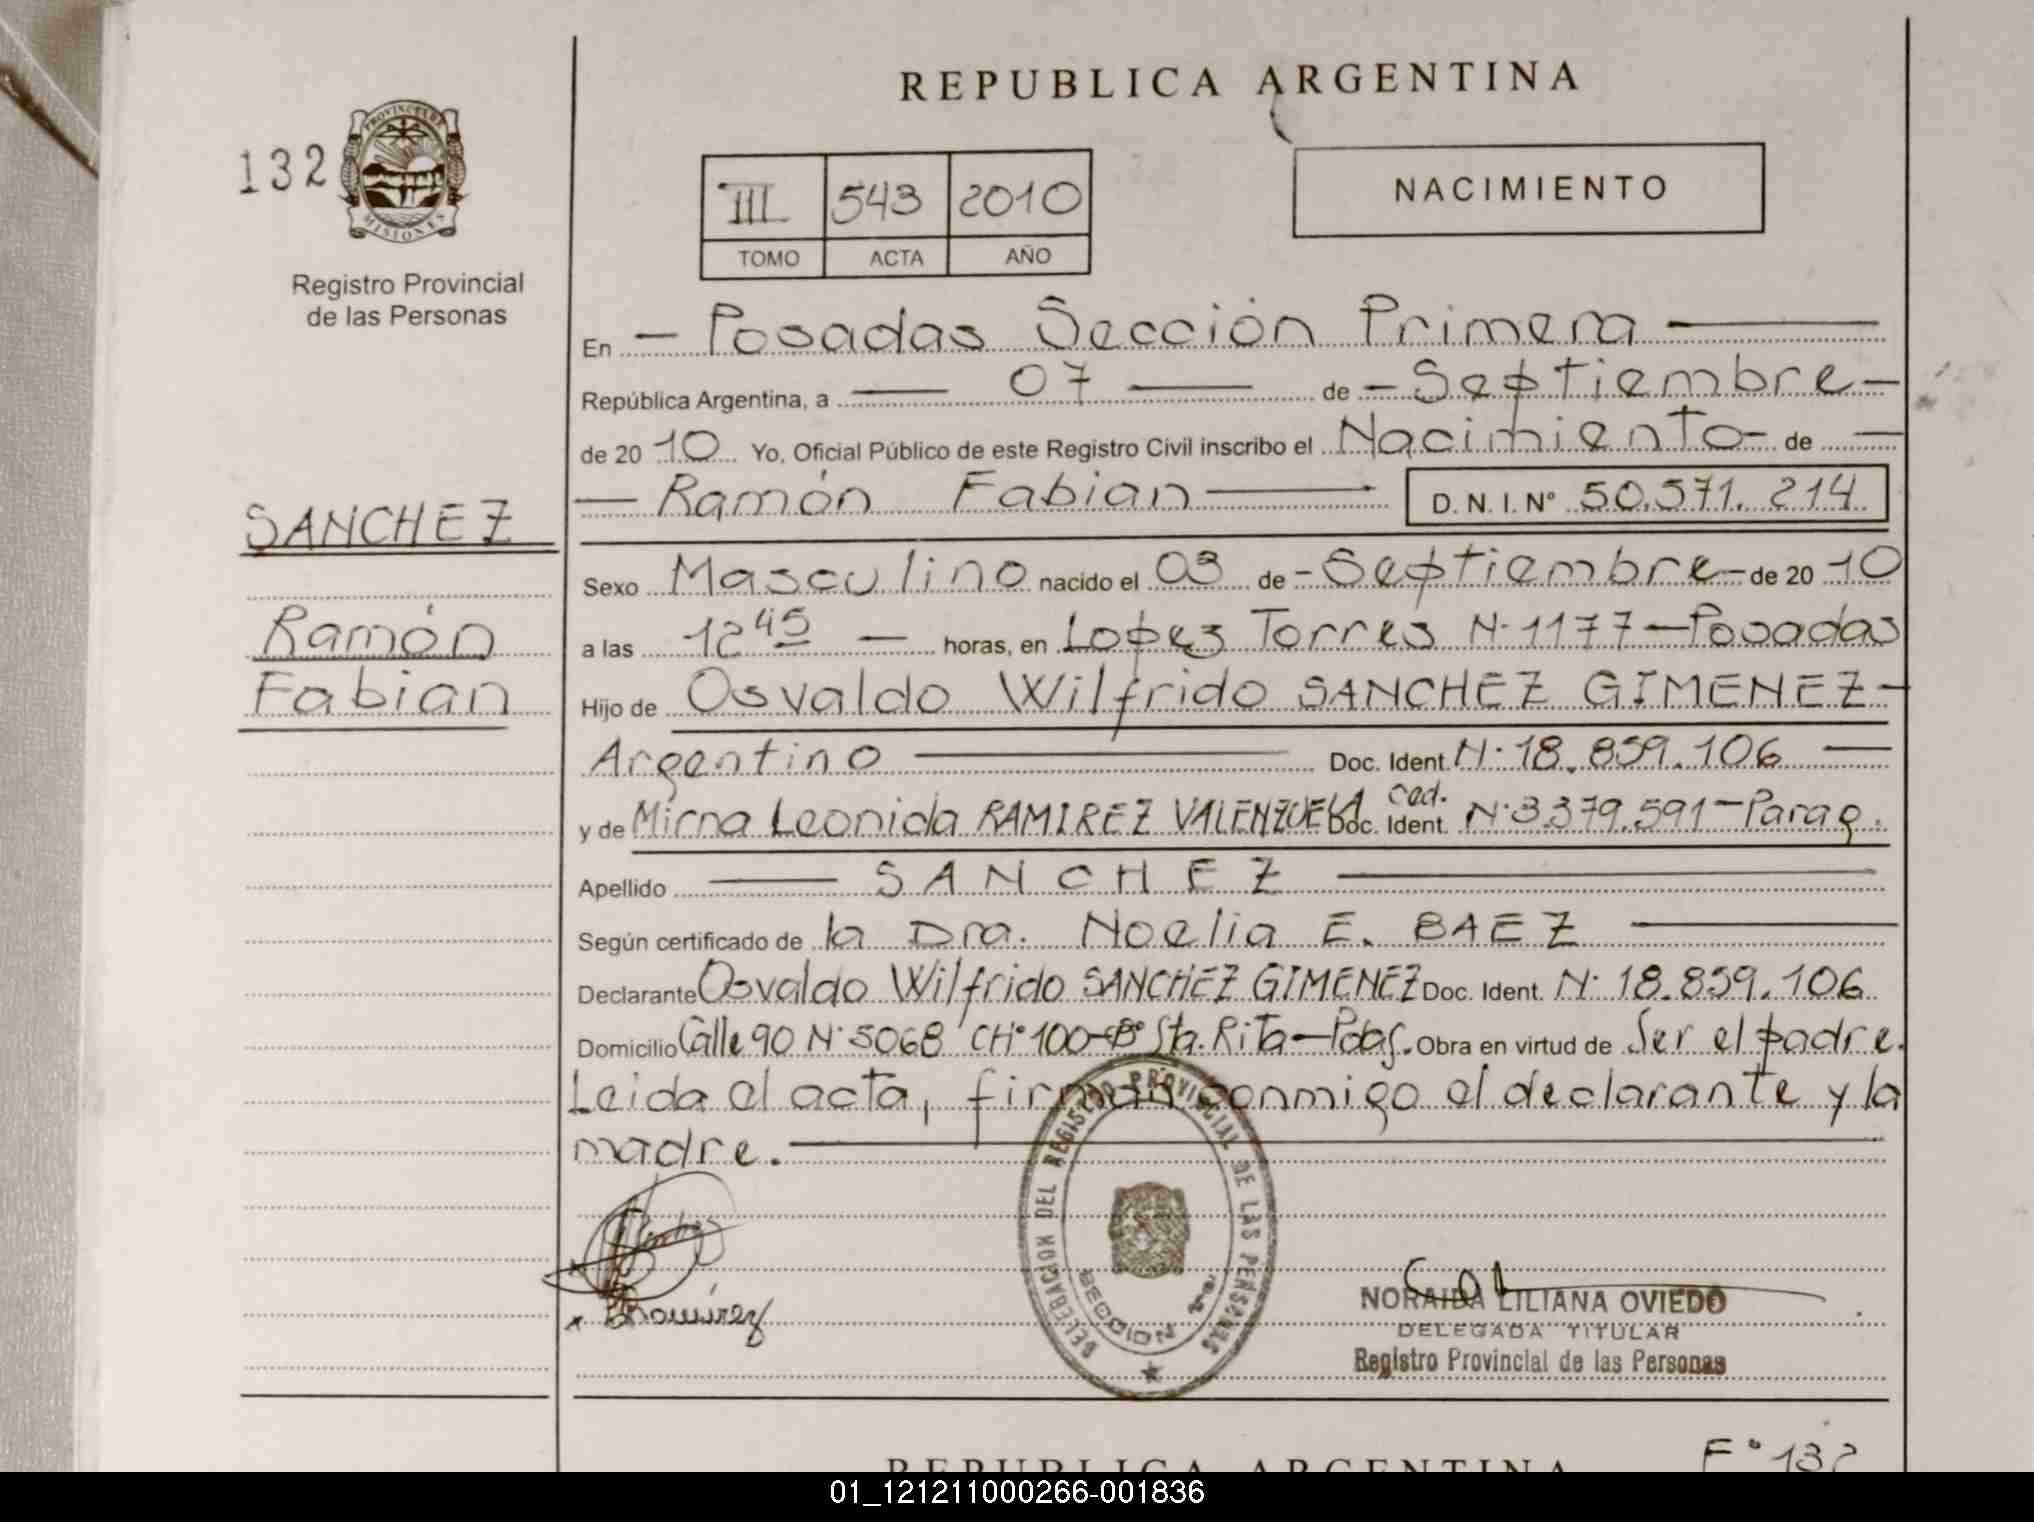 REPUBLICA ARGENTINA
132
PROVINCIA DE
MISIONES
Registro Provincial
de las Personas
III 543 2010
TOMO ACTA AÑO
NACIMIENTO
En - Posadas Sección Primera
República Argentina, a 07 de - Septiembre -
de 20 10 Yo, Oficial Público de este Registro Civil inscribo el Nacimiento - de
Ramón Fabian D. N. I. Nº 50.571.214
SANCHEZ
Ramón
Fabian
Sexo Masculino nacido el 03 de - Septiembre - de 20 10
a las 12 45 — horas, en Lopez Torres N· 1177 — Posadas
Hijo de Osvaldo Wilfrido SANCHEZ GIMENEZ -
Argentino Doc. Ident. N· 18.859.106
y de Mirna Leonida RAMIREZ VALENZUELA ced. Doc. Ident. N· 3.379.591 - Parag.
Apellido SANCHEZ
Según certificado de la Dra. Noelia E. BAEZ
Declarante Osvaldo Wilfrido SANCHEZ GIMENEZ Doc. Ident. N· 18.859.106
Domicilio Calle 90 N· 5068 CHº 100 - Bº Sta. Rita - Pdas. Obra en virtud de Ser el padre.
Leida el acta, firman conmigo el declarante y la
madre.
DELEGACION DEL REGISTRO PROVINCIAL DE LAS PERSONAS
SECCION 1ª
x Ramirez
NORAIDA LILIANA OVIEDO
DELEGADA TITULAR
Registro Provincial de las Personas
REPUBLICA ARGENTINA
Fº 132
01_121211000266-001836